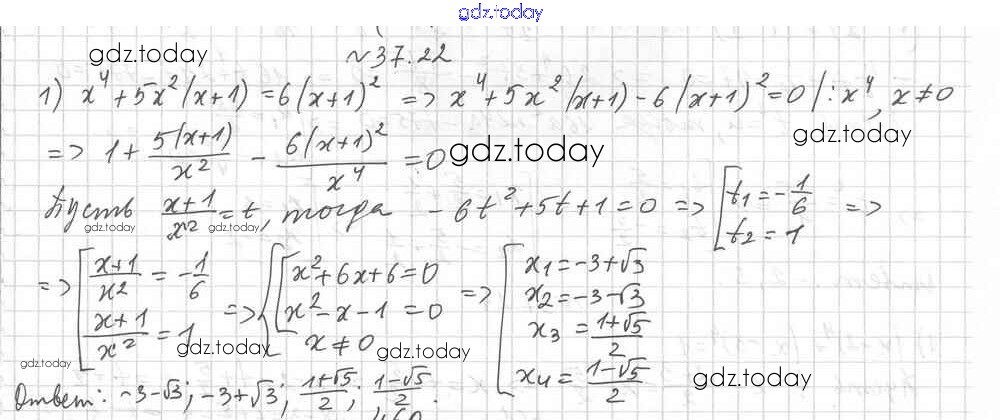 gdz.today
gdz.today
№37.22
1) x⁴+5x²(x+1)=6(x+1)² => x⁴+5x²(x+1)-6(x+1)²=0 |:x⁴, x≠0
gdz.today
=> 1+ 5(x+1)/x² - 6(x+1)²/x⁴ =0 gdz.today
Пусть x+1/x² =t, тогда -6t²+5t+1=0 => [t₁=-1/6 =>
t₂=1
gdz.today gdz.today
=> [x+1/x² = -1/6 => {[x²+6x+6=0 => [x₁=-3+√3
x+1/x² = 1 x²-x-1=0 x₂=-3-√3
x≠0 x₃ = 1+√5/2
gdz.today gdz.today gdz.today
x₄= 1-√5/2
gdz.today
Ответ: -3-√3; -3+√3; 1+√5/2; 1-√5/2.